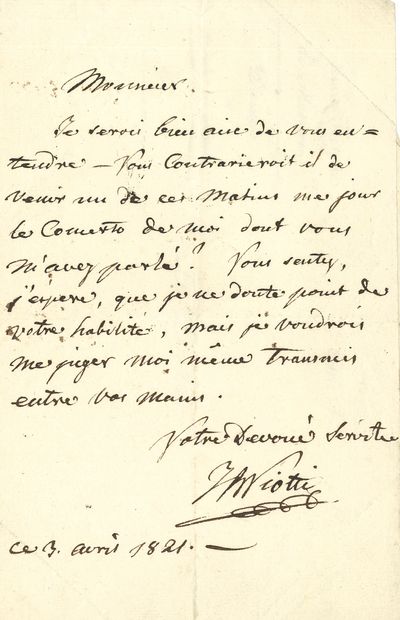 Monsieur.
Je serois bien aise de vous en=
tendre — Vous Contrarieroit il de
venir un de ces Matins me jouer
le Concerto de moi dont vous
m'avez parlé ? Vous sentez,
j'espere, que je ne doute point de
votre habilité, mais je voudrois
me juger moi même transmis
entre vos mains.
Votre Devoué Servite
JB Viotti
ce 3. avril 1821. —